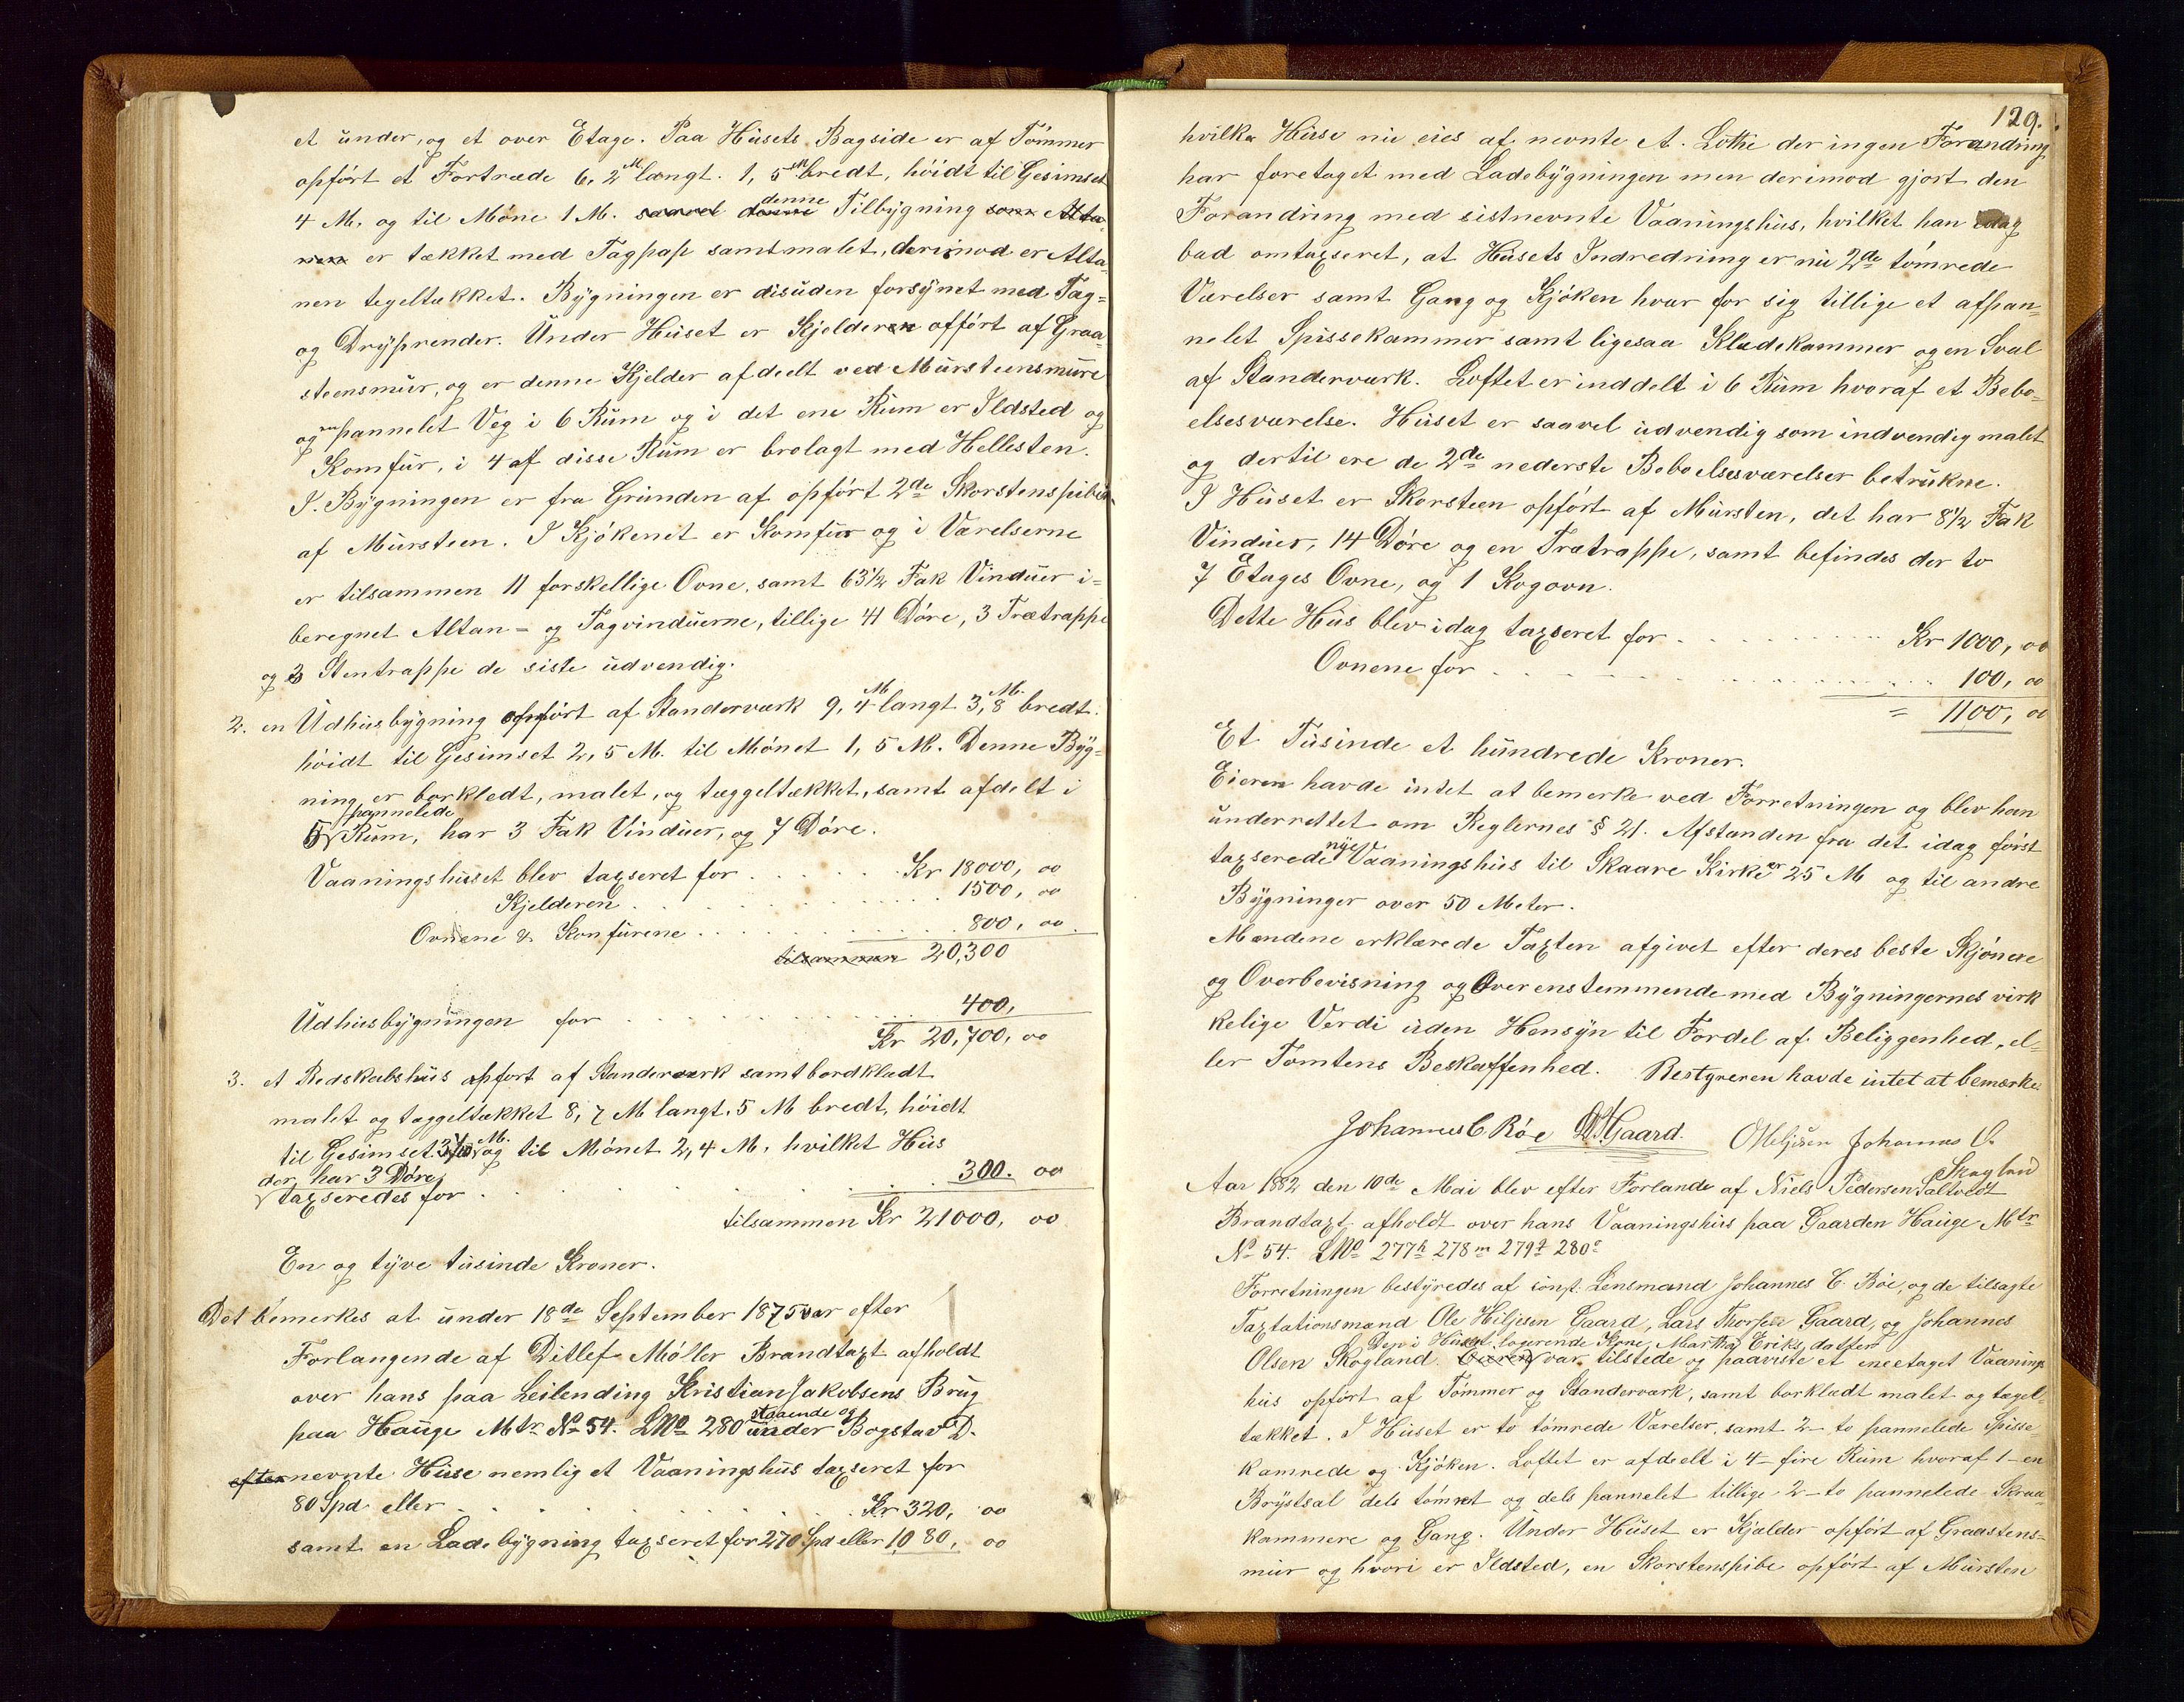 et under, og et over Etage. Paa Husets Bagside er af Tømmer
opført et Fortræde 6,2 M langt. 1,5 M bredt, høidt til Gesimset
4 M. og til Møne 1 M. saavel denne denne Tilbygning som Alta-
nen er tækket med Tagpap samt malet, derimod er Alta-
nen tegeltækket. Bygningen er disuden forsynet med Tag=
og Dryprender. Under Huset er Kjelderen opført af Graa-
steensmur, og er denne Kjelder afdeelt ved Mursteensmure
og pannelet Veg i 6 Rum og i det ene Rum er Ildsted og
Komfur, i 4 af disse Rum er brolagt med Hellesten.
I Bygningen er fra Grunden af opført 2de Skorstenspiber
af Mursteen. I Kjøkenet er Komfur og i Værelserne
er tilsammen 11 forskellige Ovne, samt 63½ Fak Vinduer i=
beregnet Altan= og Tagvinduerne, tillige 41 Døre, 3 Trætrappe
og 3 Stentrappe de siste udvendig.
2. en Udhusbygning opført af Standerværk 9,4 M langt 3,8 M. bredt.
høidt til Gesimset 2,5 M. til Mønet 1,5 M. Denne Byg=
ning er borkledt, malet, og tæggeltækket, samt afdelt i
pannelede
5 Rum, har 3 Fak Vinduer, og 7 Døre.
Vaaningshuset blev taxseret for . . . . . Kr 18000, 00
Kjelderen . . . . . . . . 1500, 00
Ovnene & Komfurene . . . . . . . 800, 00
tilsammen 20,300
Udhusbygningen for . . . . . . . . 400,
Kr 20,700, 00
3. et Redskabshus opført af Standerværk samt bordklædt
malet og tæggeltækket 8,7 M langt, 5 M bredt, høidt
til Gesimset M. og til Mønet 2,4 M. hvilket Hus
der har 3 Døre,
taxseredes for . . . . . . . . 300. 00
tilsammen Kr 21000, 00
En og tyve tusinde Kroner.
Det bemerkes at under 18de September 1875 var efter
Forlangende af Ditlef Møller Brandtaxt afholdt
over hans paa Leilending Kristian Jakobsens Brug
staaende og
paa Hauge Mtr No 54. LNo 280 under Bogstav D.
efternevnte Huse nemlig et Vaaningshus taxseret for
80 Spd eller . . . . . . . . Kr 320, 00
samt en Ladebygning taxseret for 270 Spd eller 1080, 00
129.
hvilke Huse nu eies af nevnte A. Lothe der ingen Forandring
har foretaget med Ladebygningen men derimod gjort den
Forandring med sistnevnte Vaaningshus, hvilket han idag
bad omtaxseret, at Husets Indredning er nu 2de tømrede
Værelser samt Gang og Kjøken hvar for sig tillige et afpan=
nelet Spissekammer samt ligesaa Kladekammer og en Sval
af Standerværk. Loftet er inddelt i 6 Rum hvoraf et Bebo=
elsesværelse. Huset er saavel udvendig som indvendig malet
og dertil ere de 2de nederste Beboelsesværelser betrukne.
I Huset er Skorsteen opført af Mursten, det har 8½ Fak
Vinduer, 14 Døre og en Trætrappe, samt befindes der to
7 Etages Ovne, og 1 Kogovn.
Dette Hus blev idag taxseret for . . . . . . Kr 1000, 00
Ovnene for . . . . . . . . . 100, 00
= 1100, 00
Et Tusinde et hundrede Kroner.
Eieren havde intet at bemerke ved Forretningen og blev han
underrettet om Reglernes § 21. Afstanden fra det idag først
taxserede nye Vaaningshus til Skaare Kirke er 25 M og til andre
Bygninger over 50 Meter.
Mændene erklærede Taxten afgivet efter deres beste Skjønne
og Overbevisning og Overenstemmende med Bygningernes virk
kelige Verdi uden Hensyn til Fordel af Beliggenhed, el=
ler Tomtens Beskaffenhed. Bestyreren havde intet at bemærke.
Johannes C Bøe Gaard. O Heljesen Johannes O.
Skogland
Aar 1882 den 10de Mai blev efter Forlande af Niels Pedersen Saltvedt
Brandtaxt afholdt over hans Vaaningshus paa Gaarden Hauge Mtr
No 54. LNo 277h 278m 279 280c
Forretningen bestyredes af const. Lensmand Johannes C. Bøe, og de tilsagte
Taxtationsmænd Ole Hiljesen Gaard, Lars Thorsen Gaard, og Johannes
Den i Huset logerende Kone, Martha Eriksdatter
Olsen Skogland. Eieren var tilstede og paaviste et eneetaget Vaanings
hus opført af Tømmer og Standerværk, samt borklædt malet og tægel-
tækket. I Huset er to tømrede Værelser, samt 2 - to pannelede Spisse
kamrede og Kjøken. Loftet er afdeelt i 4 - fire Rum hvoraf 1 - en
Brystsal dels tømret og dels pannelet tillige 2 - to pannelede Skraa-
kammere og Gang. Under Huset er Kjælder opført af Graastens=
mur og hvori er Ildsted, en Skorstenspibe opført af Mursten